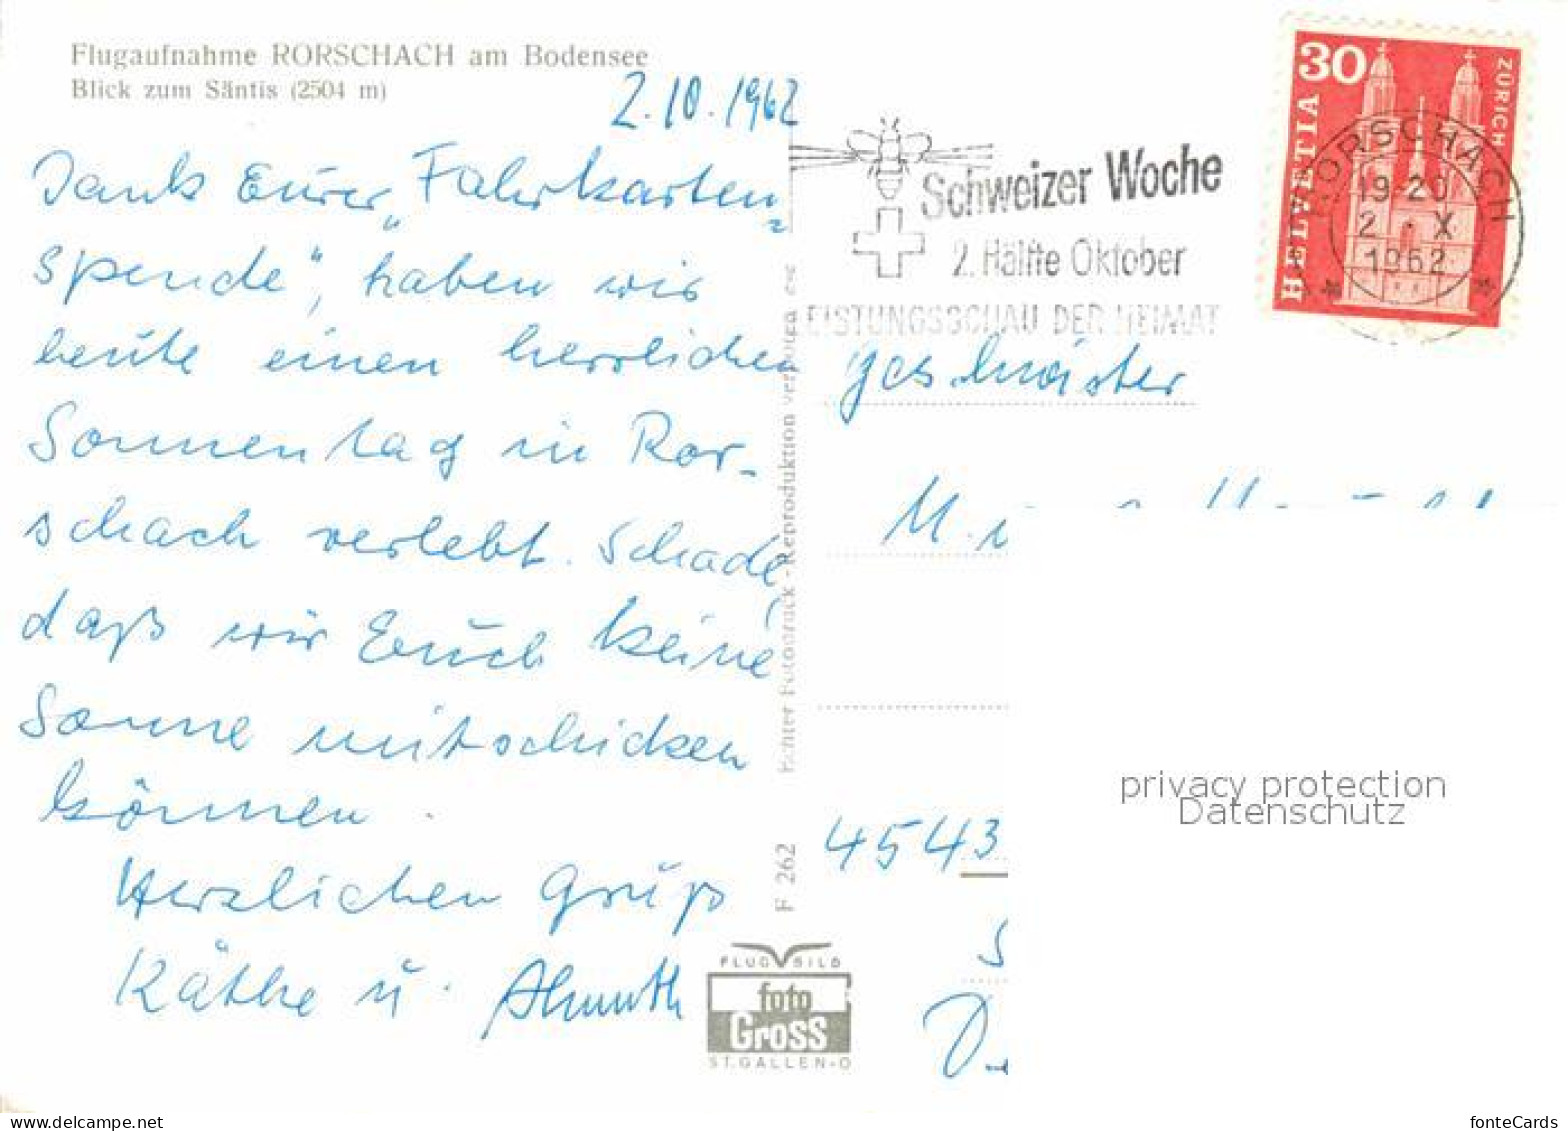 Flugaufnahme RORSCHACH am Bodensee
Blick zum Säntis (2504 m)
2.10.1962
Dank Eurer „Fahrkarten-
spende“, haben wir
heute einen herrlichen
Sonnentag in Ror-
schach verlebt. Schade,
daß wir Euch keine
Sonne mitschicken
können.
Herzlichen Gruß
Käthe u. Almuth
Echter Fotodruck - Reproduktion verboten
F 262
FLUG BILD
foto
Gross
ST. GALLEN-O
Schweizer Woche
2. Hälfte Oktober
LEISTUNGSSCHAU DER HEIMAT
30
HELVETIA
ZÜRICH
RORSCHACH
19-20
2.X
1962
4543
privacy protection
Datenschutz
www.delcampe.net
fonteCards